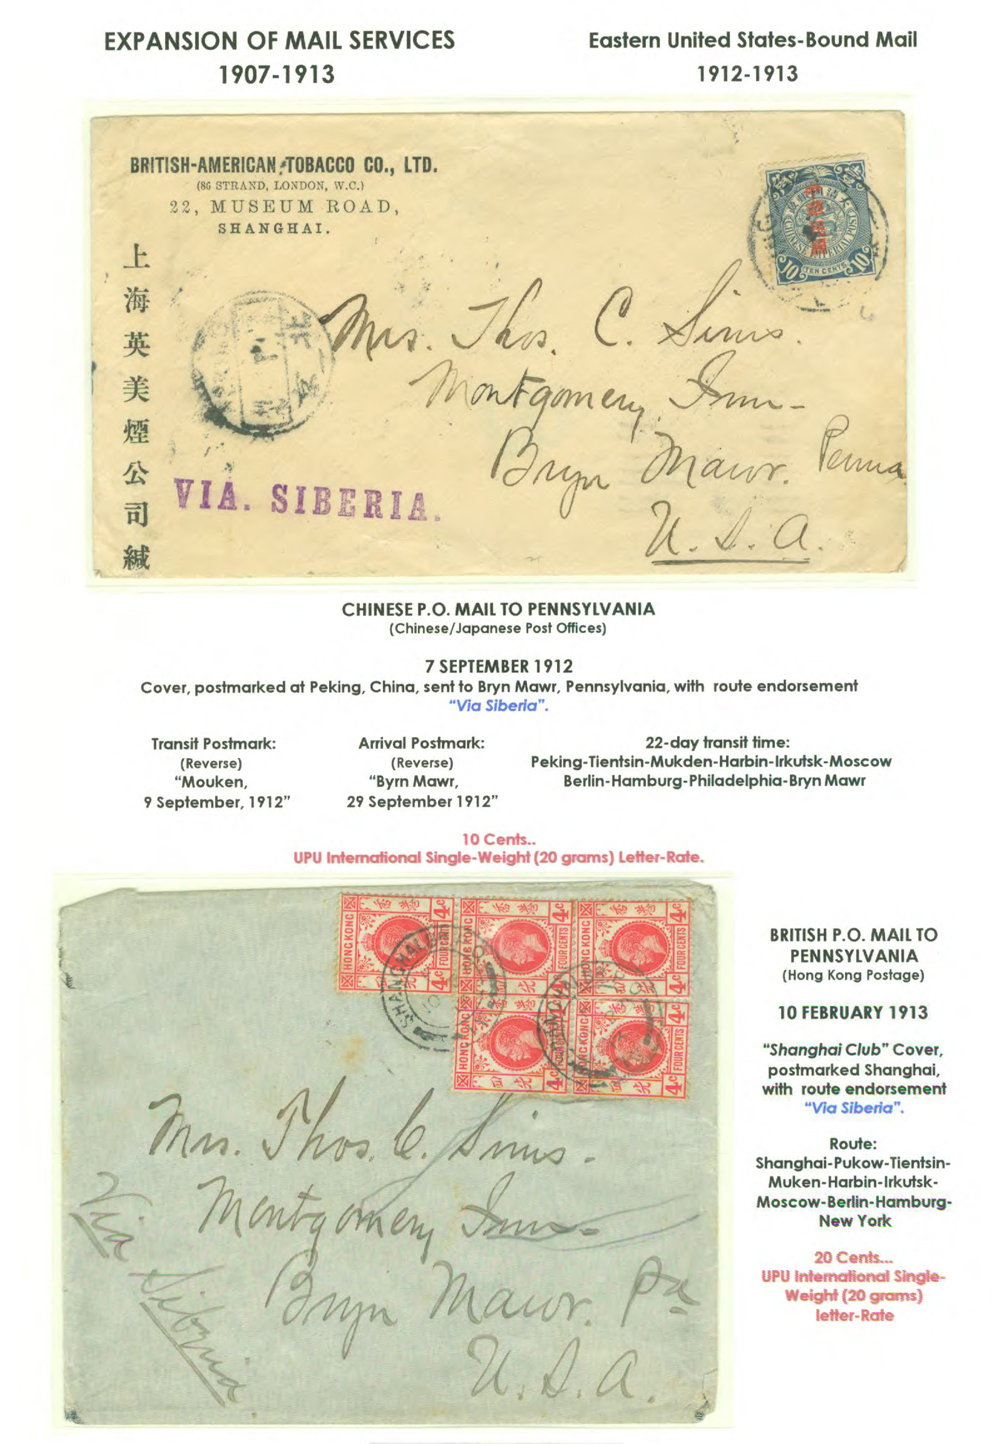 EXPANSION OF MAIL SERVICES
1907-1913
Eastern United States-Bound Mail
1912-1913
BRITISH-AMERICAN TOBACCO CO., LTD.
(86 STRAND, LONDON, W.C.)
22, MUSEUM ROAD,
SHANGHAI.
上海英美煙公司緘
CHINESE IMPERIAL POST
10 TEN CENTS 10
Mrs. Thos. C. Sims.
Montgomery Inn-
Bryn Mawr. Penna
U. S. A.
VIA. SIBERIA.
CHINESE P.O. MAIL TO PENNSYLVANIA
(Chinese/Japanese Post Offices)
7 SEPTEMBER 1912
Cover, postmarked at Peking, China, sent to Bryn Mawr, Pennsylvania, with route endorsement
"Via Siberia".
Transit Postmark:
(Reverse)
"Mouken,
9 September, 1912"
Arrival Postmark:
(Reverse)
"Byrn Mawr,
29 September 1912"
22-day transit time:
Peking-Tientsin-Mukden-Harbin-Irkutsk-Moscow
Berlin-Hamburg-Philadelphia-Bryn Mawr
10 Cents..
UPU International Single-Weight (20 grams) Letter-Rate.
HONG KONG 4c FOUR CENTS 4c
HONG KONG 4c FOUR CENTS 4c
HONG KONG 4c FOUR CENTS 4c
HONG KONG 4c FOUR CENTS 4c
HONG KONG 4c FOUR CENTS 4c
SHANGHAI
Mrs. Thos. C. Sims-
Montgomery Inn-
Bryn Mawr. Pa
U. S. A.
Via
Siberia
BRITISH P.O. MAIL TO
PENNSYLVANIA
(Hong Kong Postage)
10 FEBRUARY 1913
"Shanghai Club" Cover,
postmarked Shanghai,
with route endorsement
"Via Siberia".
Route:
Shanghai-Pukow-Tientsin-
Muken-Harbin-Irkutsk-
Moscow-Berlin-Hamburg-
New York
20 Cents...
UPU International Single-
Weight (20 grams)
letter-Rate